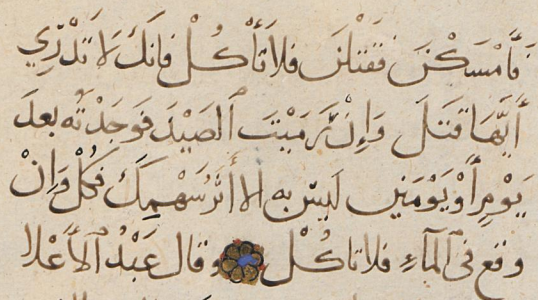 فَأَمْسَكْنَ فَقَتَلْنَ فَلَا تَأْكُلْ فَإِنَّكَ لَا تَدْرِي
أَيُّهَا قَتَلَ وَإِنْ رَمَيْتَ ٱلصَيْدَ فَوَجَدْتَه بعدَ
يَوْمٍ أَوْ يَوْمَيْنِ لَيْسَ به الا أَثَرُ سَهْمِكَ فكُلْ وَإِنْ
وقع في ٱلْمَآءِ فلا تاكُلْ وقال عَبْدُ ٱلأَعْلا